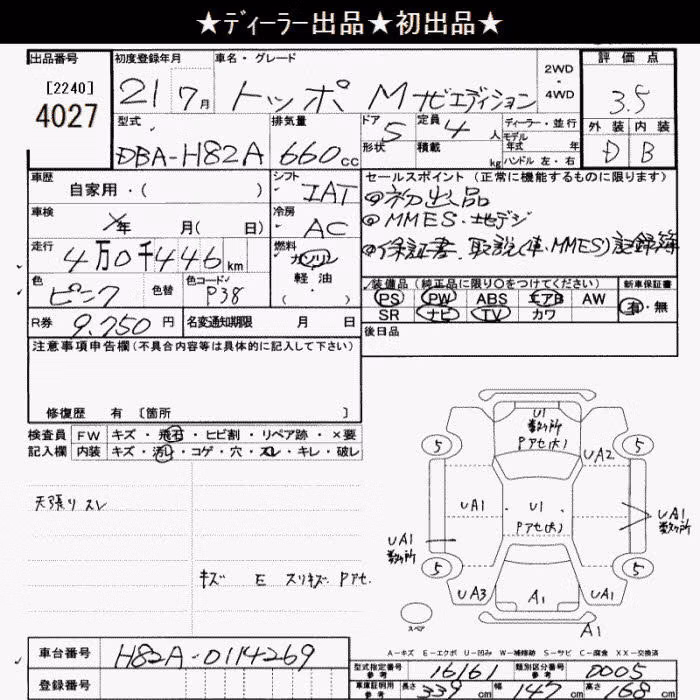 ★ディーラー出品★初出品★
出品番号 初度登録年月 車名・グレード 2WD・4WD 評価点
[2240] 4027 21 7月 トッポ Mナビエディション 3.5
型式 排気量 ドア 5 形状 定員 4人 積載 kg ディーラー・並行 モデル年式 年 ハンドル 左・右 外装 内装
DBA-H82A 660cc D B
車歴 自家用・( ) シフト IAT セールスポイント (正常に機能するものに限ります)
◎初出品
車検 年 月( 日) 冷房 AC ◎MMES・地デジ
走行 4万0千446km 燃料 ガソリン 軽油・( ) ◎保証書 取説(車、MMES)記録簿
色 ピンク 色替 色コード P38 装備品 (純正品に限り○をつけてください) 新車保証書
PS PW ABS エアB AW 有・無
R券 9,750円 名変通知期限 月 日 SR ナビ TV カワ
注意事項申告欄(不具合内容等は具体的に記入して下さい) 後日品
修復歴 有 [箇所 ]
検査員 FW キズ・飛石・ヒビ割・リペア跡・×要
記入欄 内装 キズ・汚レ・コゲ・穴・スレ・キレ・破レ
天張りスレ
キズ E スリキズ. Pアセ.
U1
数ヶ所
Pアセ(大)
5 5
UA2
UA1 U1 UA1
Pアセ(大) 数ヶ所
UA1
数ヶ所
5 5
UA3 A1 UA1
スペア A1
A-キズ E-エクボ U-凹み W-補修跡 S-サビ C-腐食 XX-交換済
車台番号 H82A-0114269
登録番号
型式指定番号 参考 16161 類別区分番号 参考 0005
車庫証明用 参考 長さ 339cm 幅 147cm 高さ 68cm